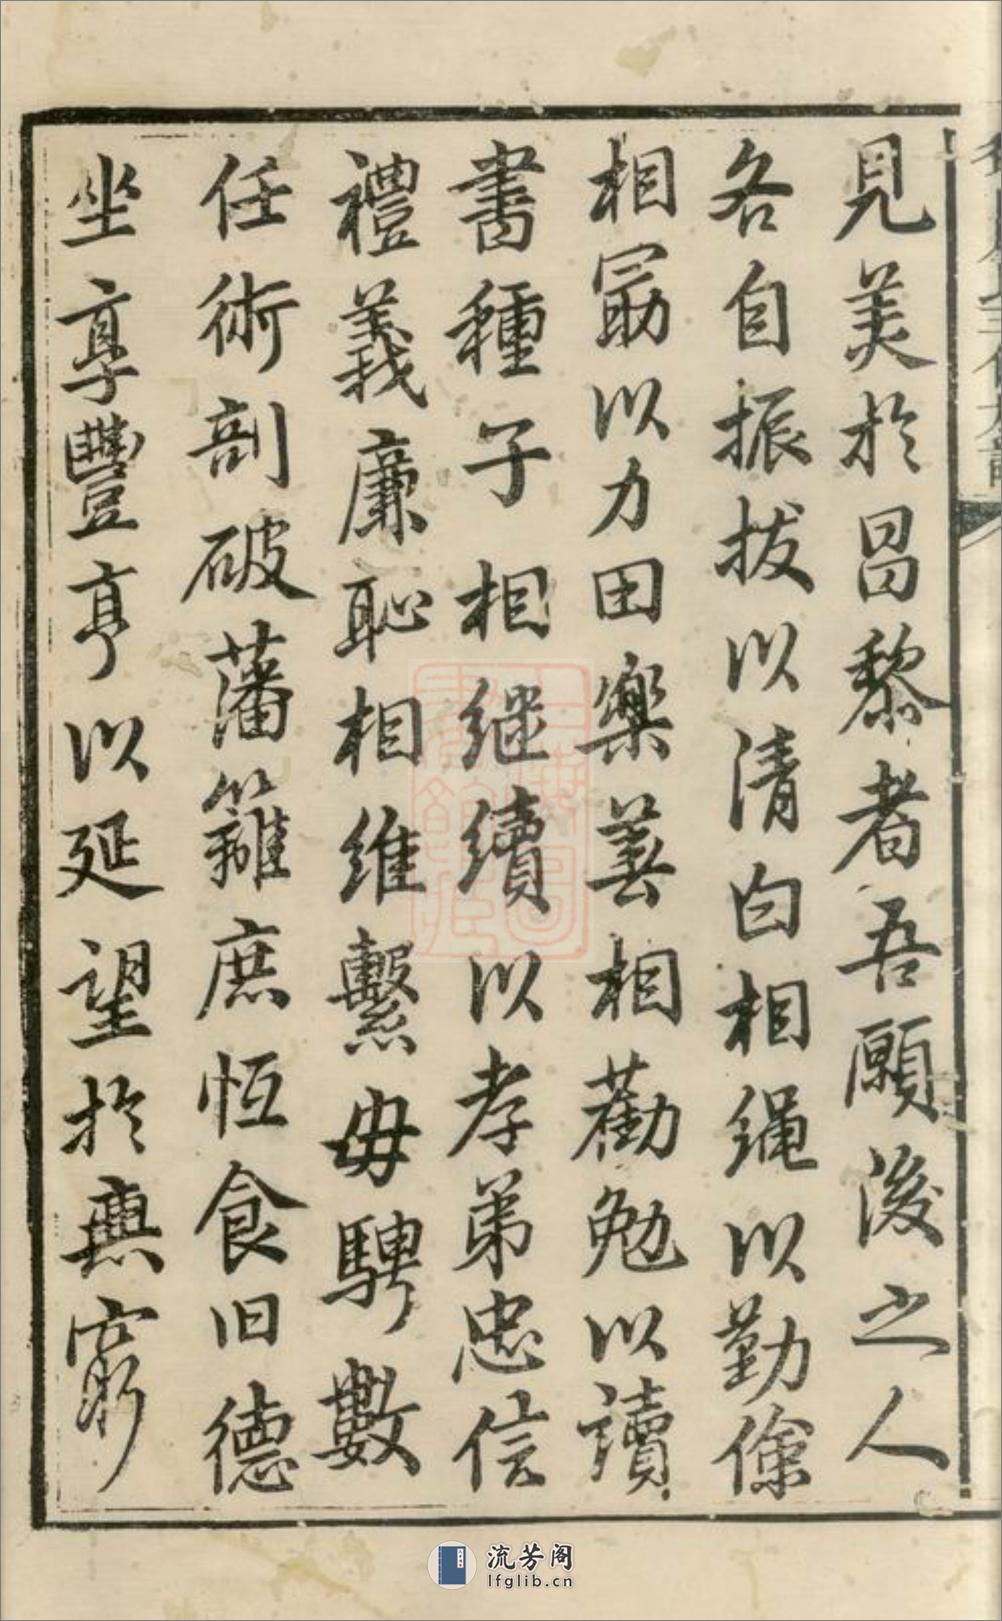 見美於昌黎者吾願後之人
各自振拔以清白相繩以勤儉
相勗以力田樂善相勸勉以讀
書種子相継續以孝弟忠信
禮義廉恥相維繫毋騁數
任術剖破藩籬庶恆食旧德
坐享豐亨以延望於無窮
流芳阁
lfglib.cn